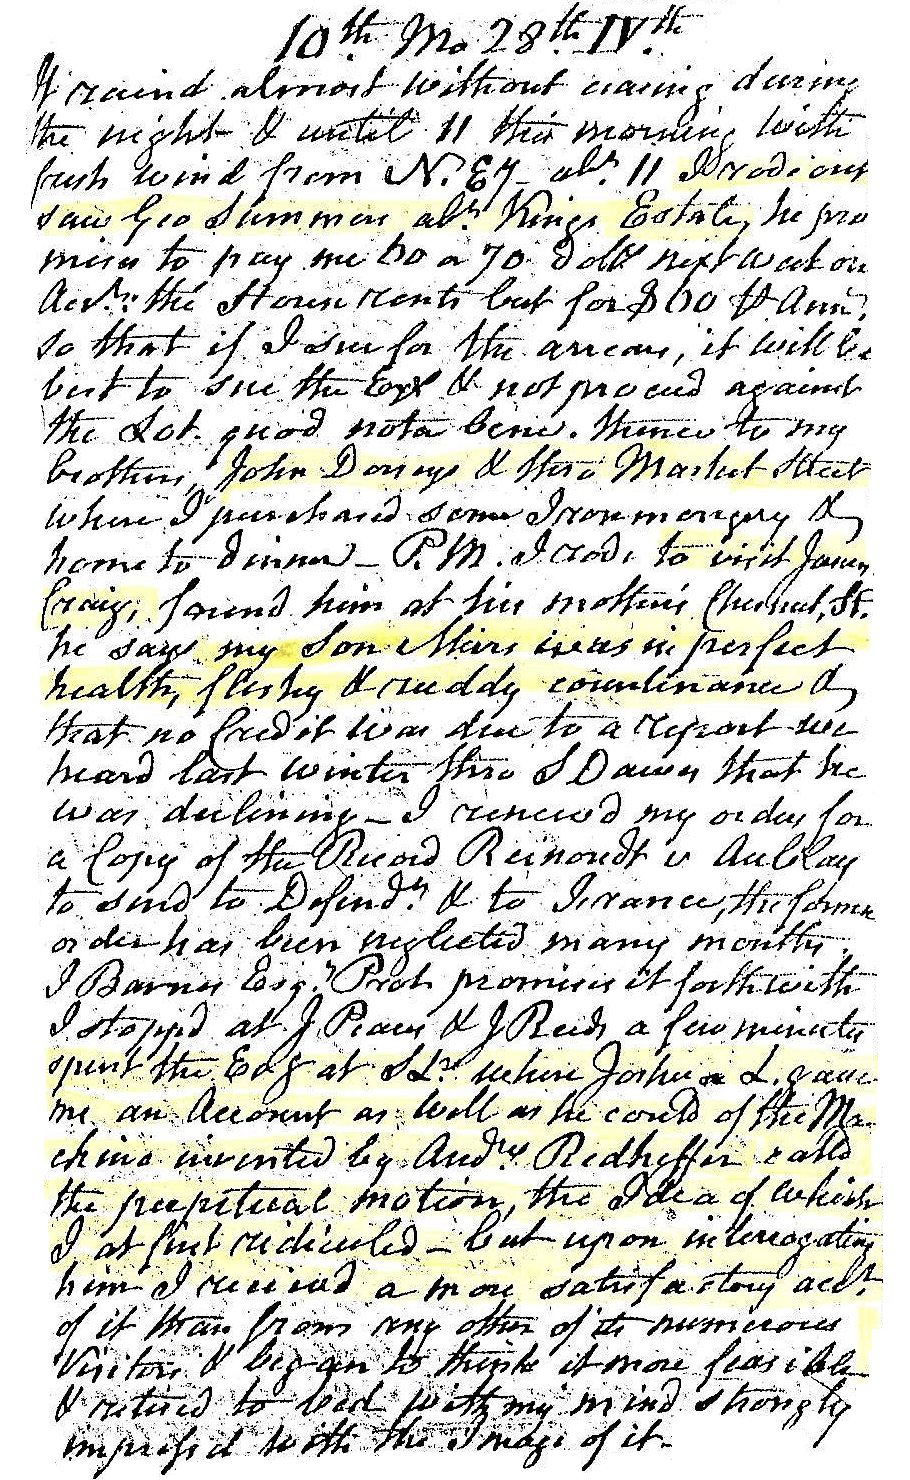 10th Mo 28th IVth
It raind almost without ceasing during
the night & until 11 this morning with
fresh wind from N. Ey - abt 11 I rode out
saw Geo Summers abt Kings Estate, he pro
mises to pay me 60 a 70 Dolls next week on
Acct: the rents but for $60 Ann:
so that if I sue for the arrears, it will be
best to sue the Exr & not proceed against
the Lot. quod nota bene. thence to my
brothers, John Dorseys & thro Market Street
where I purchased some Ironmongery &
home to dinner - P.M. I rode to visit James
Craig, found him at his mothers Chesnut, St.
he says my Son Miers was in perfect
health, fleshy & ruddy countinance &
that no Credit was due to a report we
heard last winter thro S Dawes that he
was declining - I renewd my order for
a Copy of the Record v
to send to Defendt & to the former
order has been neglected many months.
I Barnes Esqr Prot promises it forthwith
I stoppd at J Pearces & J Reeds a few minutes
spent the Evg at SLs where Joshua L. gave
me an Account as well as he could of the Ma-
chine invented by Andw Redheffer calld
the perpetual motion, the Idea of which
I at first ridiculed - but upon interrogating
him I receivd a more satisfactory acct
of it than from any other of its numerous
Visitors & began to think it more feasible
& retired to bed with my mind strongly
impressd with the Image of it.